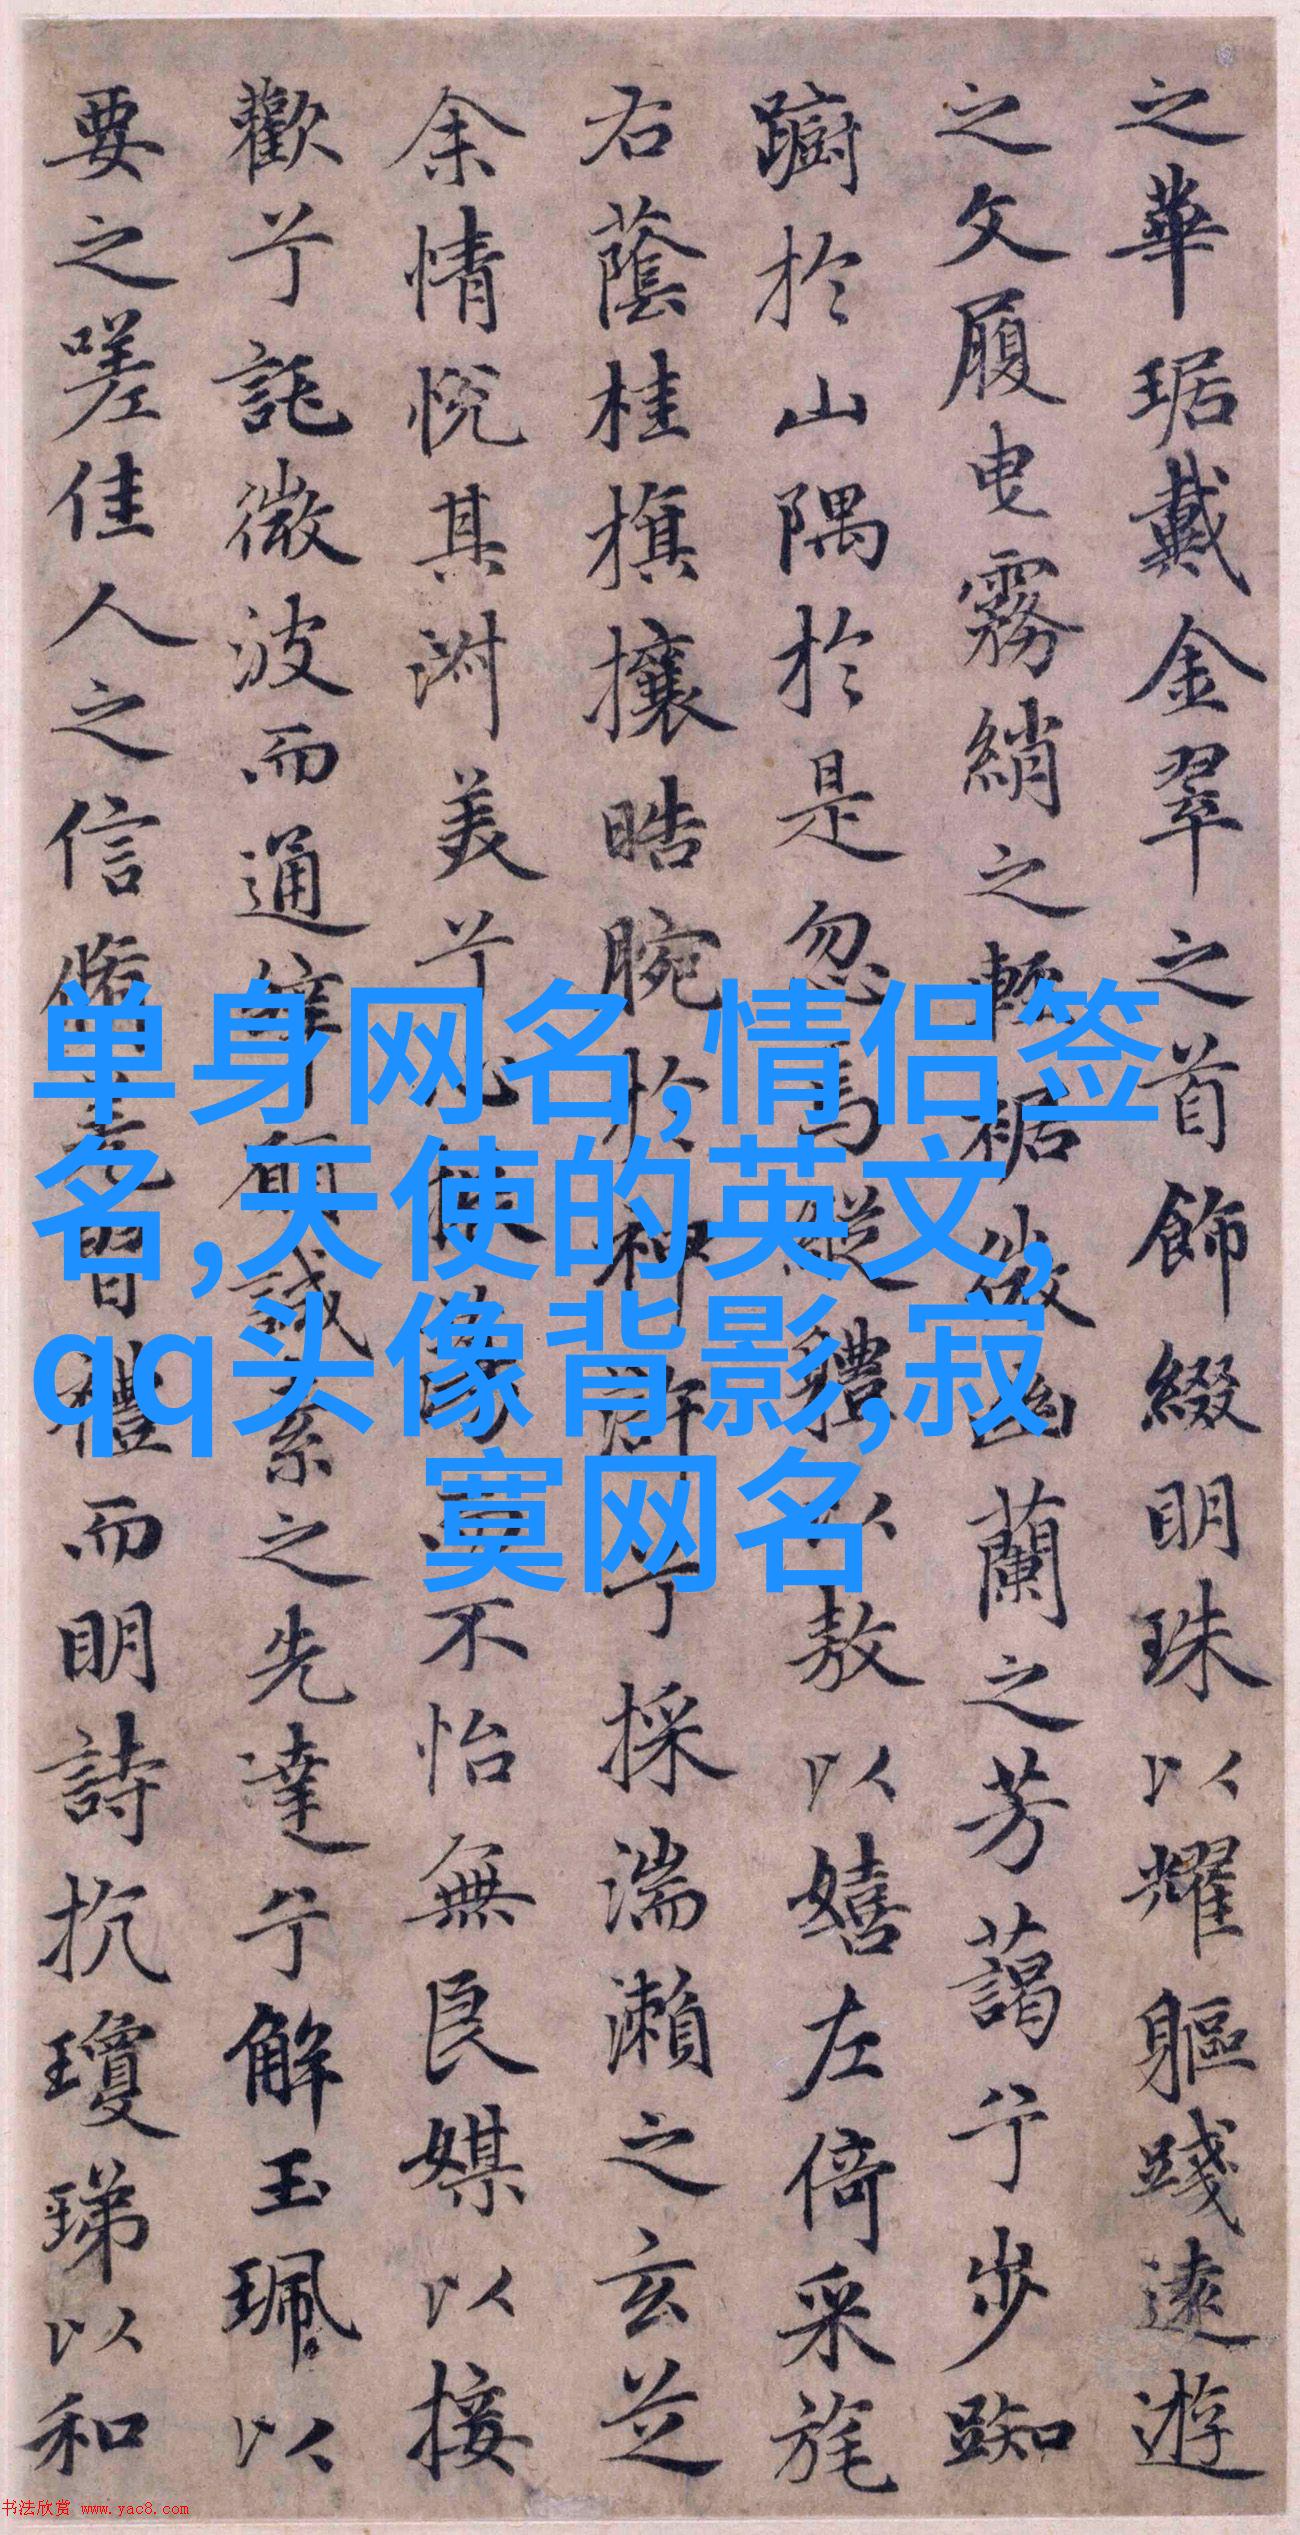 之華琚戴金翠之首飾綴明珠以耀軀踐遠遊
之文履曳霧綃之輕裾微幽蘭之芳藹兮步踟
躕於山隅於是忽焉縱體以敖以嬉左倚采旄
右蔭桂旗攘皓腕於神滸兮採湍瀨之玄芝
余情悅其淑美兮心振蕩而不怡無良媒以接
歡兮託微波而通辭願誠素之先達兮解玉珮以
要之嗟佳人之信脩羌習禮而明詩抗瓊珶以和
单身网名,情侣签
名,天使的英文,
qq头像背影,寂
寞网名
书法欣赏 www.yac8.com